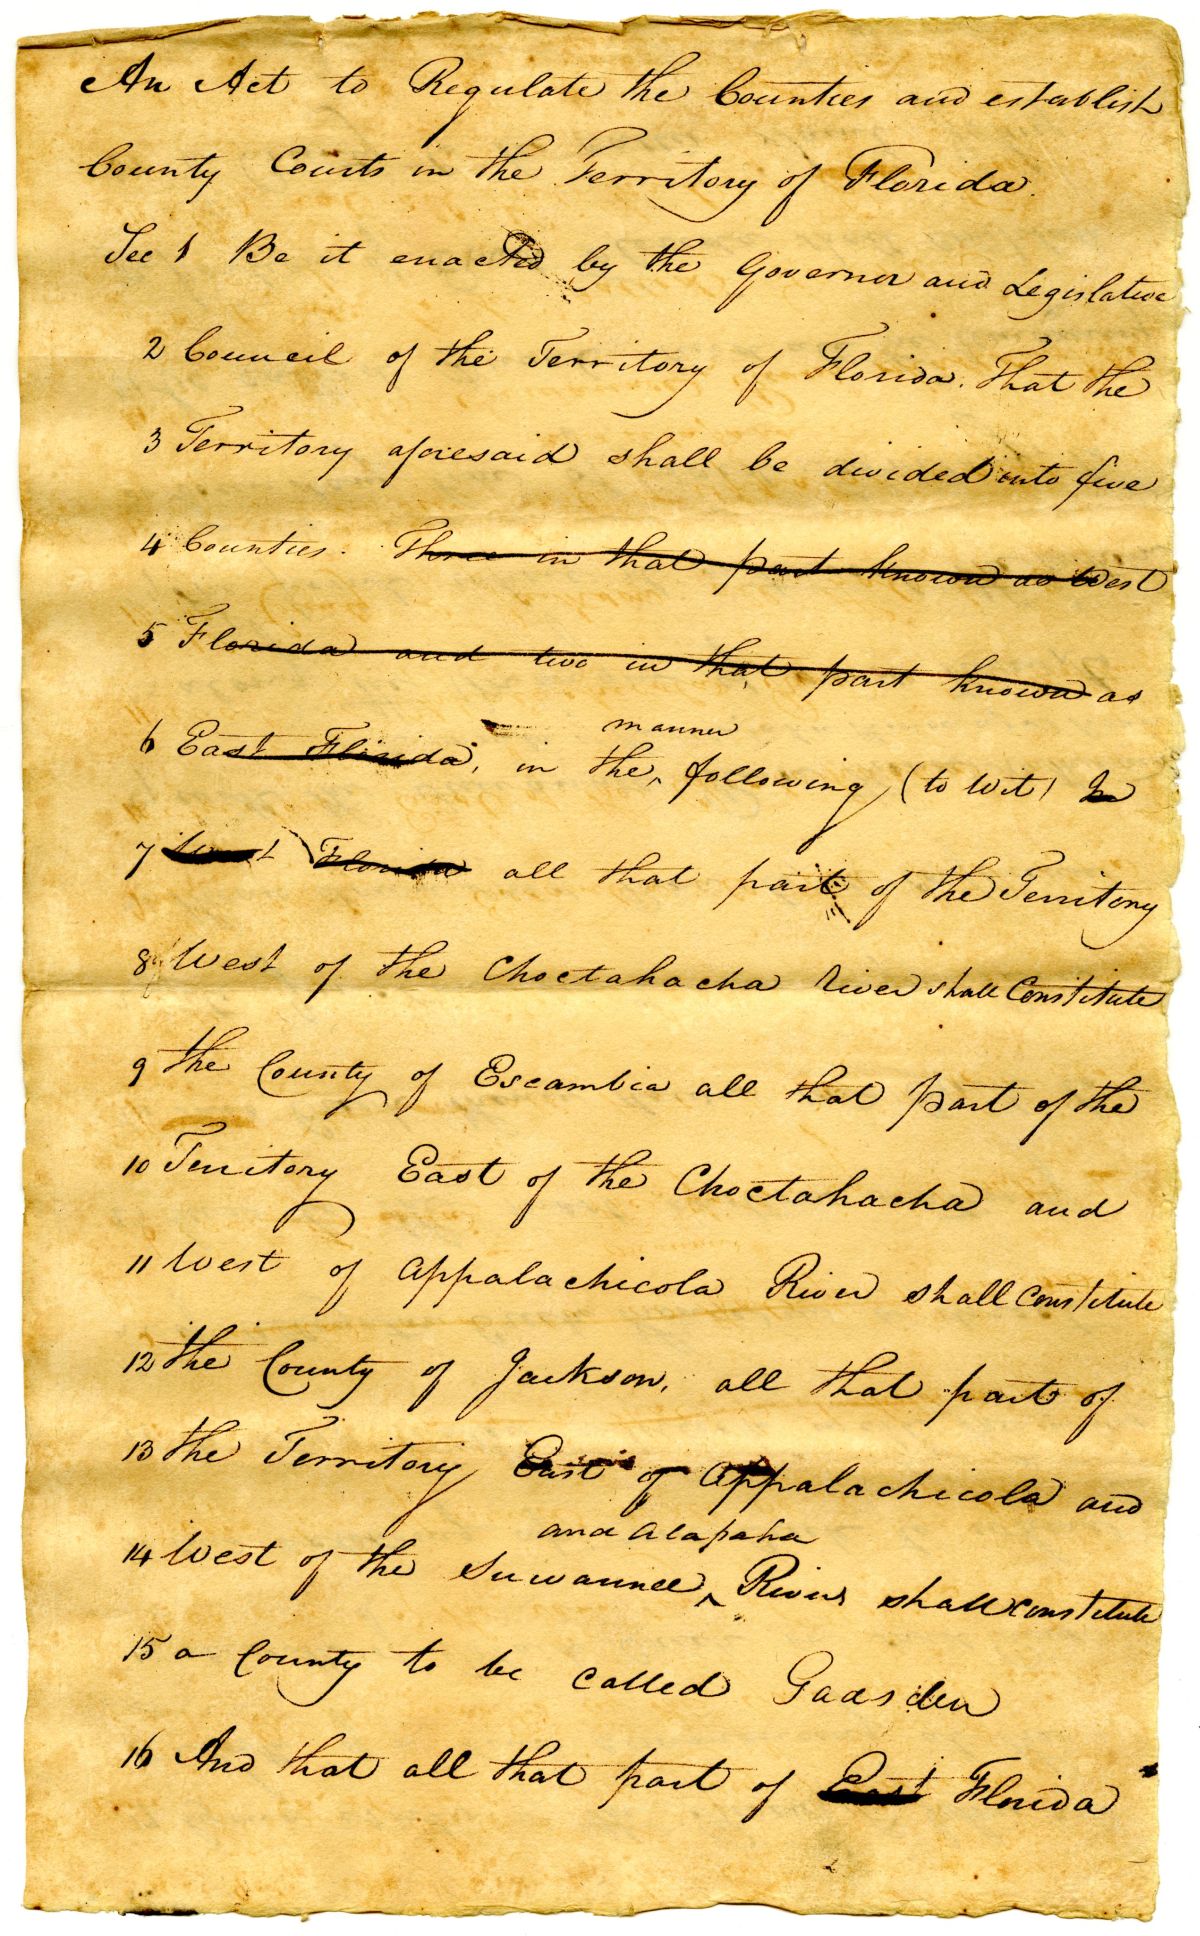 An Act to Regulate the Counties and establish
County Courts in the Territory of Florida.
Sec 1 Be it enacted by the Governor and Legislative
2 Council of the Territory of Florida. That the
3 Territory aforesaid shall be divided into five
4 Counties. Three in that part known as West
5 Florida and two in that part known as
manner
6 East Florida, in the ‸ following (to wit) In
7 West Florida all that part of the Territory
8 West of the Choctahacha River shall Constitute
9 the County of Escambia all that part of the
10 Territory East of the Choctahacha and
11 West of Appalachicola River shall constitute
12 the County of Jackson, all that part of
13 the Territory East of Appalachicola and
and Alapaha
14 West of the Suwannee ‸ Rivers shall constitute
15 a County to be called Gadsden
16 And that all that part of East Florida